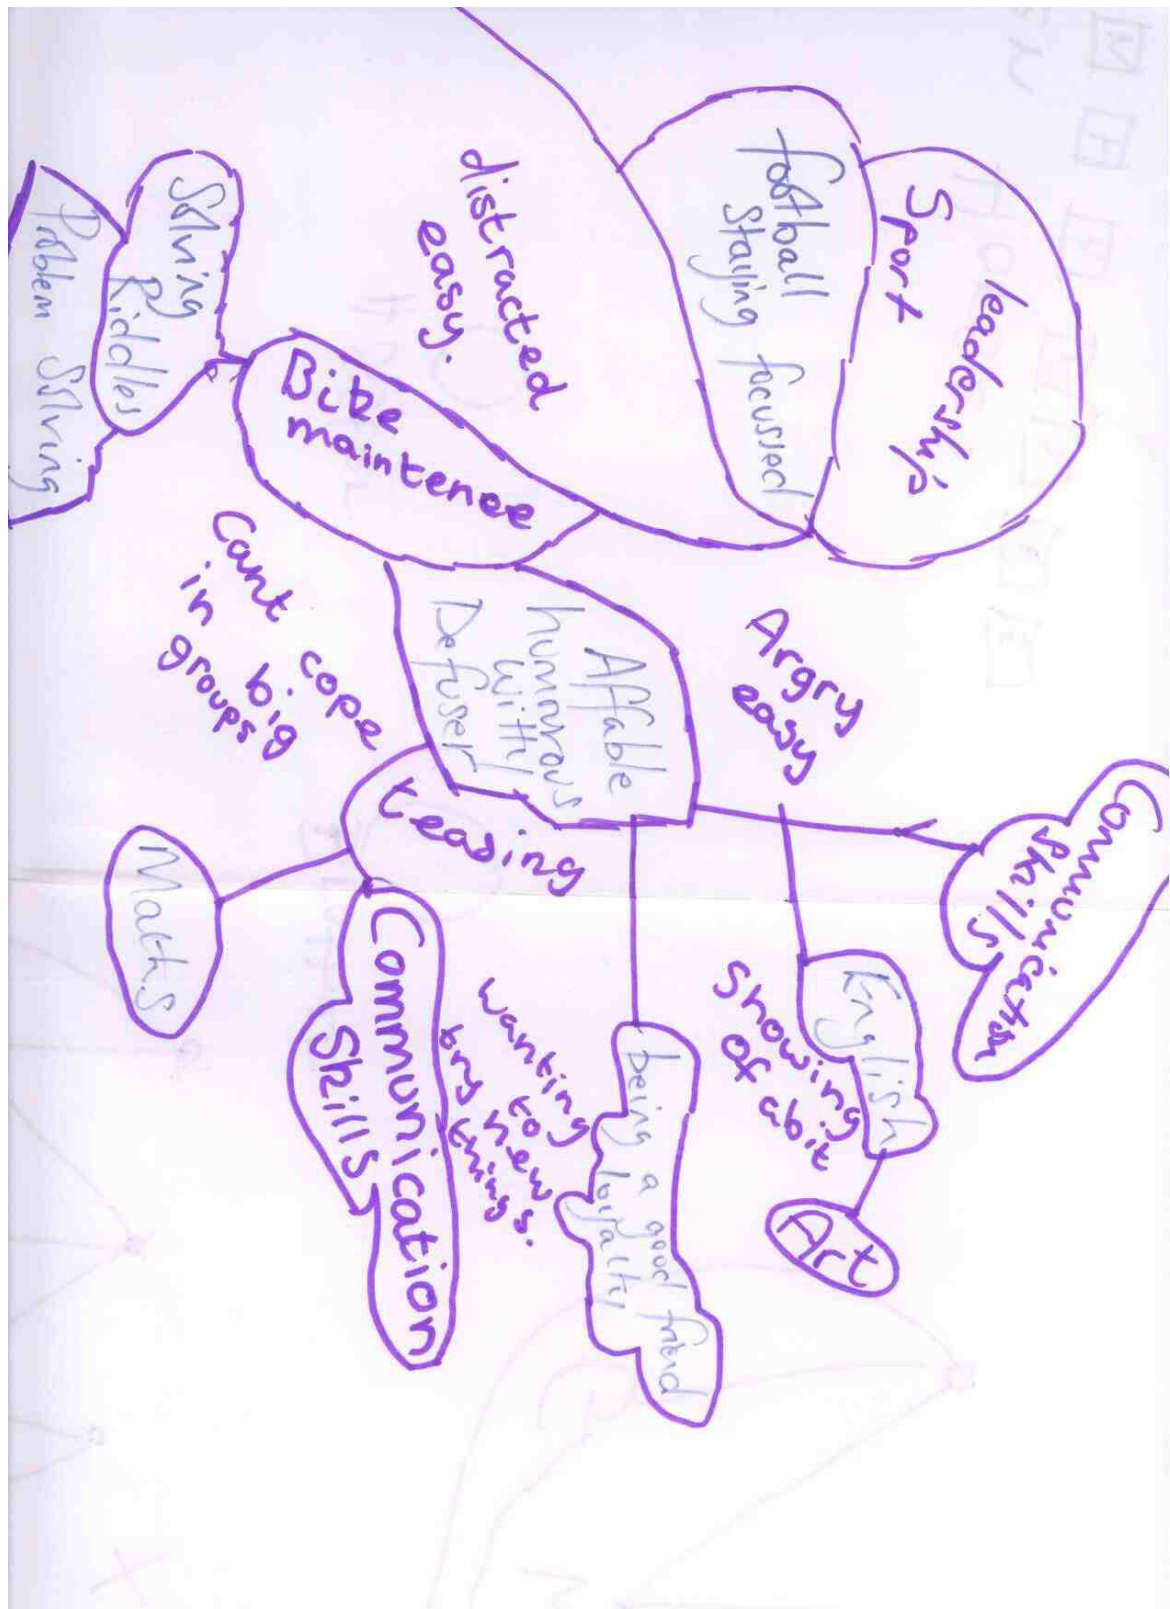 leadership
Sport
football
Staying focussed
distracted
easy.
Bike
maintenee
Solving
Riddles
Problem Solving
Argry
easy
Affable
humorous
with
Defuser
Cant cope
in big
groups
teasing
Communication
Skills
English
Art
Showing
of abit
being a good friend
loyalty
wanting
to
try new
things.
Communication
Skills
Maths